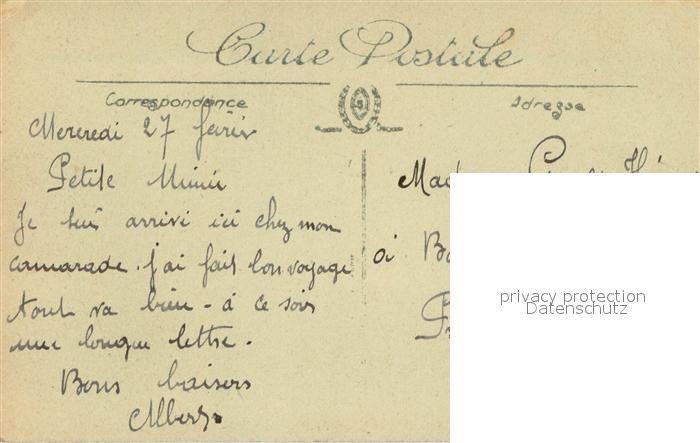 Carte Postale
Correspondance
Adresse
Mercredi 27 février
Petite Mimie
Je suis arrivé ici chez mon
camarade. j'ai fait bon voyage
tout va bien - à ce soir
une longue lettre.
Bons baisers
Albert
privacy protection
Datenschutz